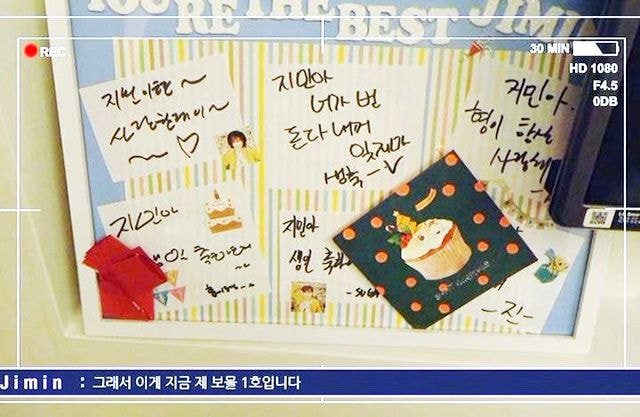 YOU'RE THE BEST JIMIN
REC
30 MIN
HD 1080
F4.5
0DB
지민이형~
사랑한대이~
~♡
지민아
너가 번
돈 다 내꺼
잊지마
생축
지민아.
형이 항상
사랑해
지민아
생일 축하해
지민아
생일 축하
-SUGA
-진-
Jimin : 그래서 이게 지금 제 보물 1호입니다